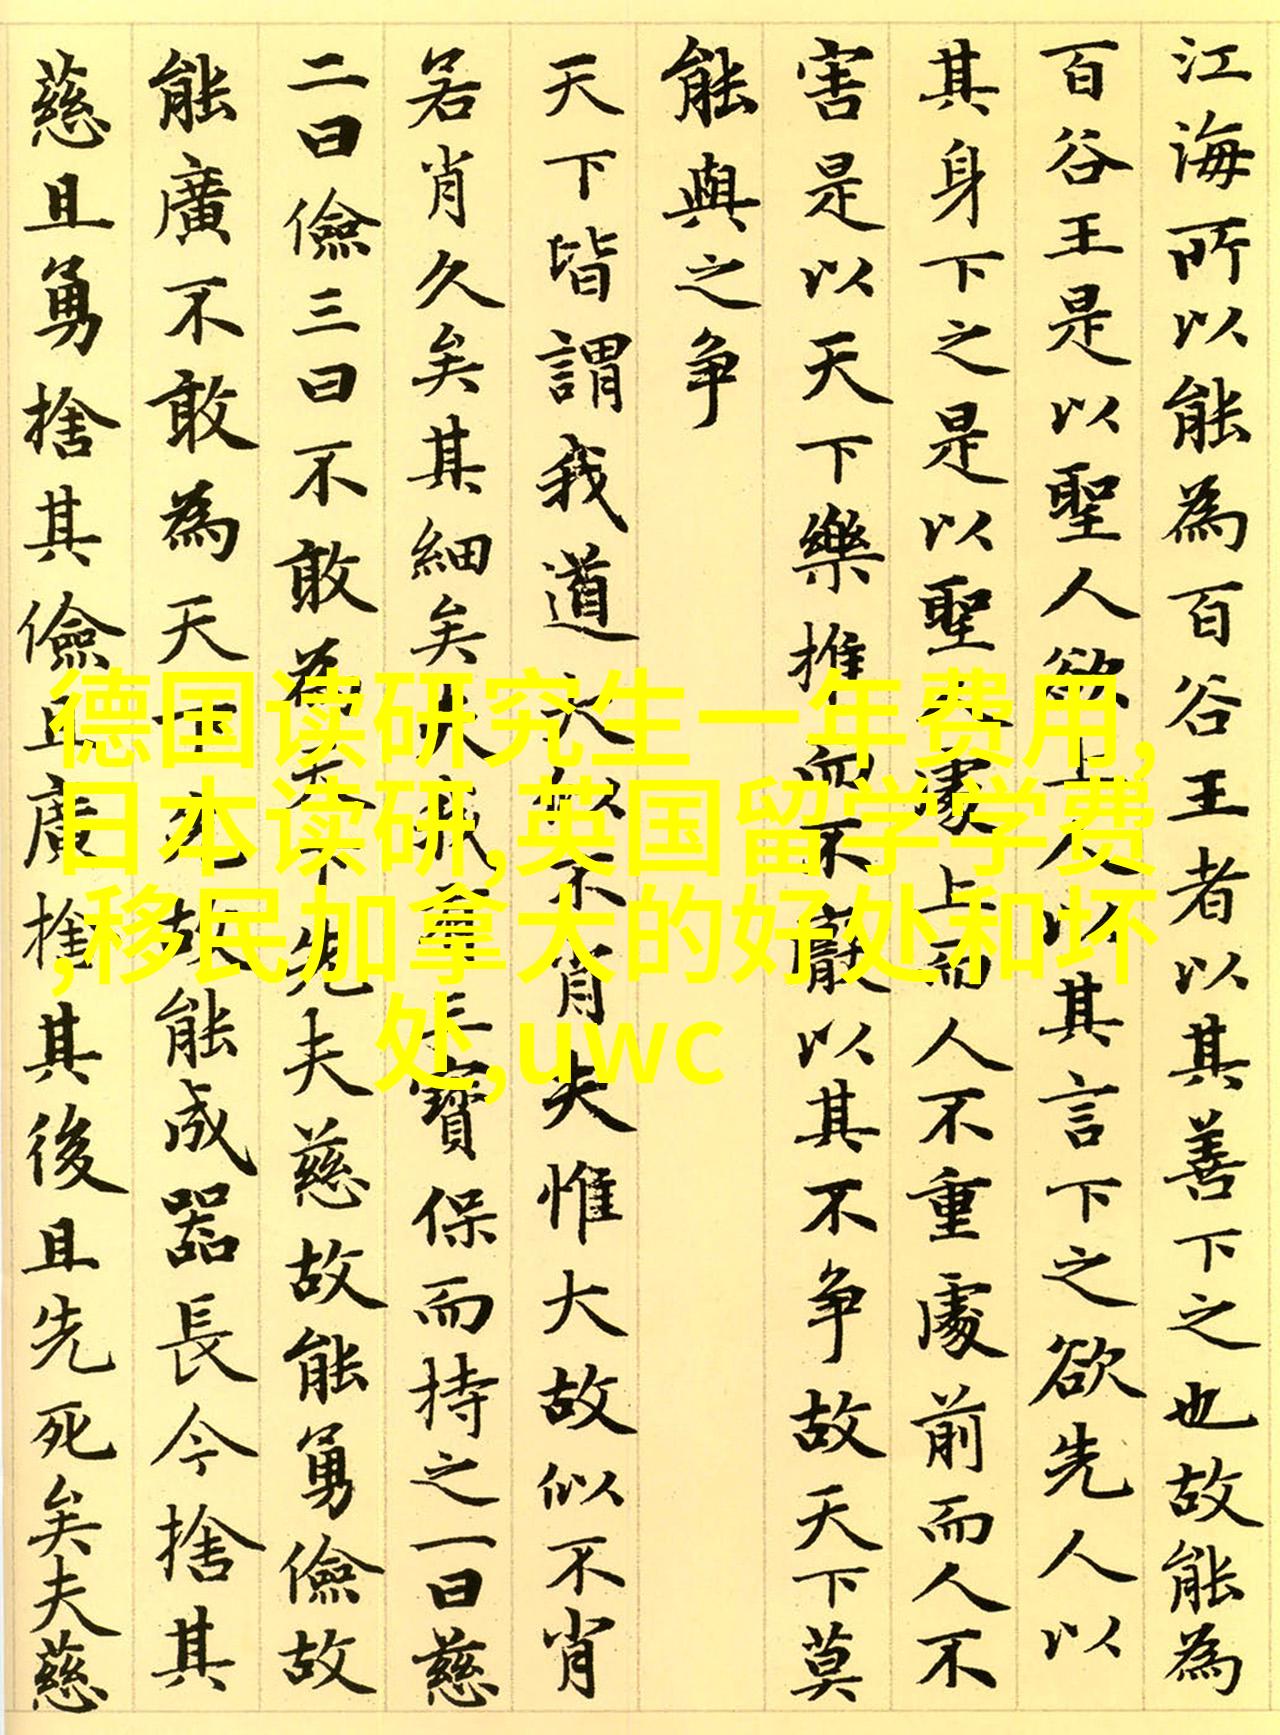 江海所以能為百谷王者以其善下之也故能為
百谷王是以聖人欲上人以其言下之欲先人以
其身下之是以聖人處上而人不重處前而人不
害是以天下樂推而不厭以其不争故天下莫
能與之争
天下皆謂我道大似不肖夫惟大故似不肖
若肖久矣其細矣夫我有三寶保而持之一曰慈
二曰儉三曰不敢為天下先夫慈故能勇儉故
能廣不敢為天下先故能成器長今捨其
慈且勇捨其儉且廣捨其後且先死矣夫慈
德国读研究生一年费用,
日本读研,英国留学学费
,移民加拿大的好处和坏
处,uwc